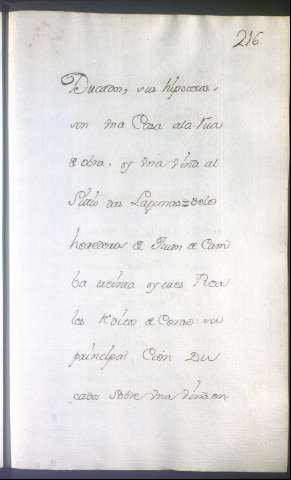 216
Ducados, sus hipotecas,
son Una Casa ala Rua
& obra, y Una Viña al
Sitio das Lagunas = Delos
herederos & Juan & Cam
ba treinta y tres Rea
les & Censo su
principal Cien Du
cados Sobre Una Viña en